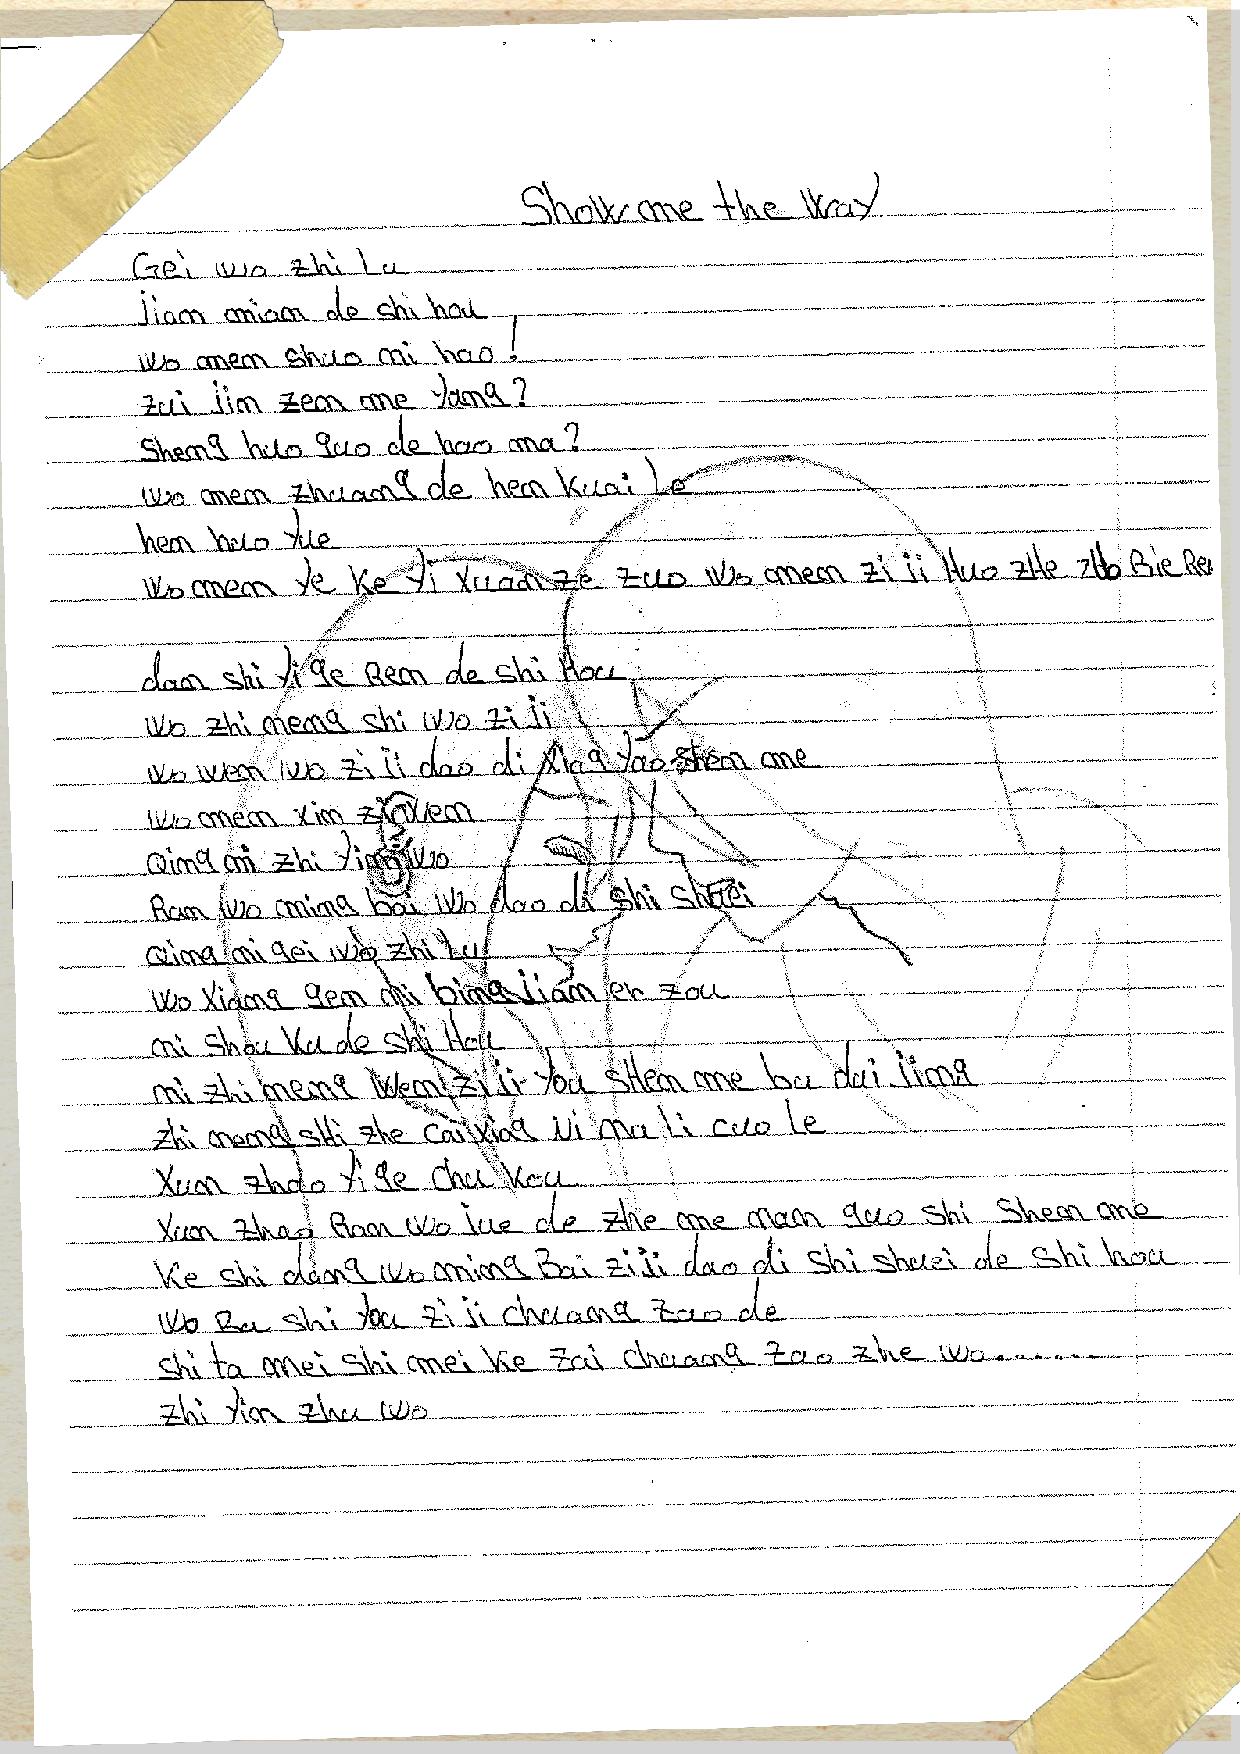 Show me the way
Gei wo zhi Lu
jian mian de shi hou
wo men shuo ni hao!
zui jin zen me yang?
sheng huo guo de hao ma?
wo men zhuang de hen kuai Le
hen huo yue
wo men ye ke yi xuan ze zuo wo men zi ji Huo zHe Bie Re
dan shi yi ge Ren de shi Hou
wo zhi neng shi wo zi ji
wo wen wo zi ji dao di Xiag yao shen me
wo men xin zi wen
Qing ni zhi wo
Ran wo ming bai wo dao di shi shuei
Qing ni gei wo zhi Lu
wo Xiang gen ni bing jian er zou
ni shou Ku de shi Hou
ni zhi neng wen zi ji you sHen me bu dai jing
zhi neng sHi zhe cai xiag Ni na li cuo le
Xun zhao yi ge chu kou
Xun zhao Ran wo jue de zhe me nan guo shi shen me
Ke shi dang wo ming Bai zi ji dao di shi shuei de shi hou
wo Bu shi you zi ji chuang zao de
shi ta mei shi mei ke zai chuang zao zhe wo.......
zhi yin zhu wo